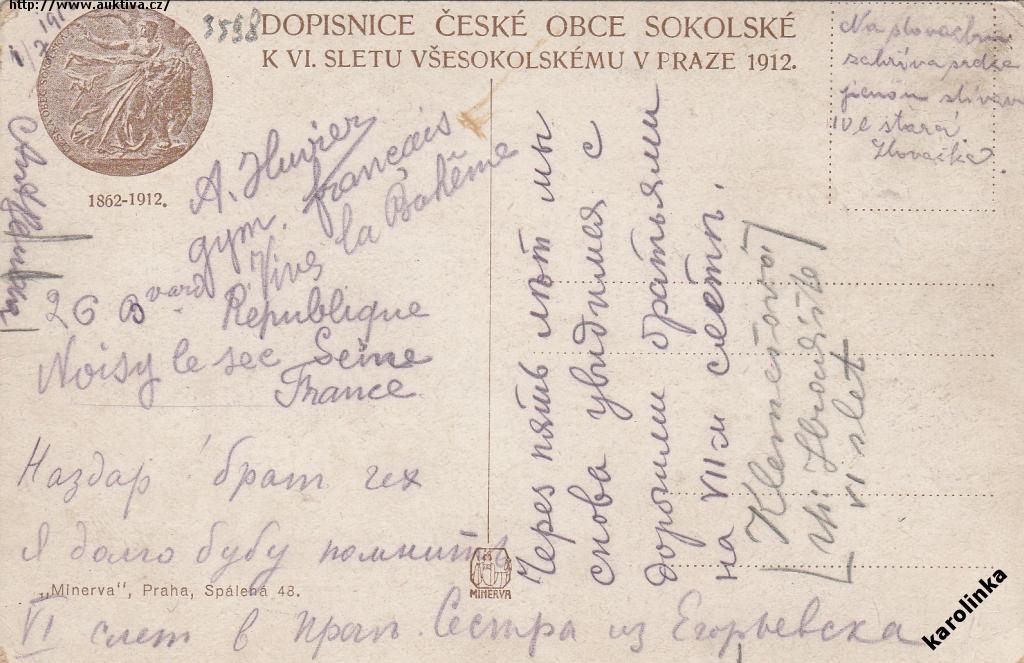 http://www.auktiva.cz/
3598
DOPISNICE ČESKÉ OBCE SOKOLSKÉ
K VI. SLETU VŠESOKOLSKÉMU V PRAZE 1912.
1862-1912.
Na
srdce
stará
Slovačka
A. Huvier
gym. français
Vive la Bohême
26 Bvard République
Noisy le sec Seine
France
Наздар брат чех
Я долго буду помнить
VI слет в Праг. Сестра из Егорьевска
Через пять лѣт мы
снова увидимся с
дорогими братьями
на VII-м слеты.
Klementová
VI slet
„Minerva", Praha, Spálená 48.
MINERVA
karolinka